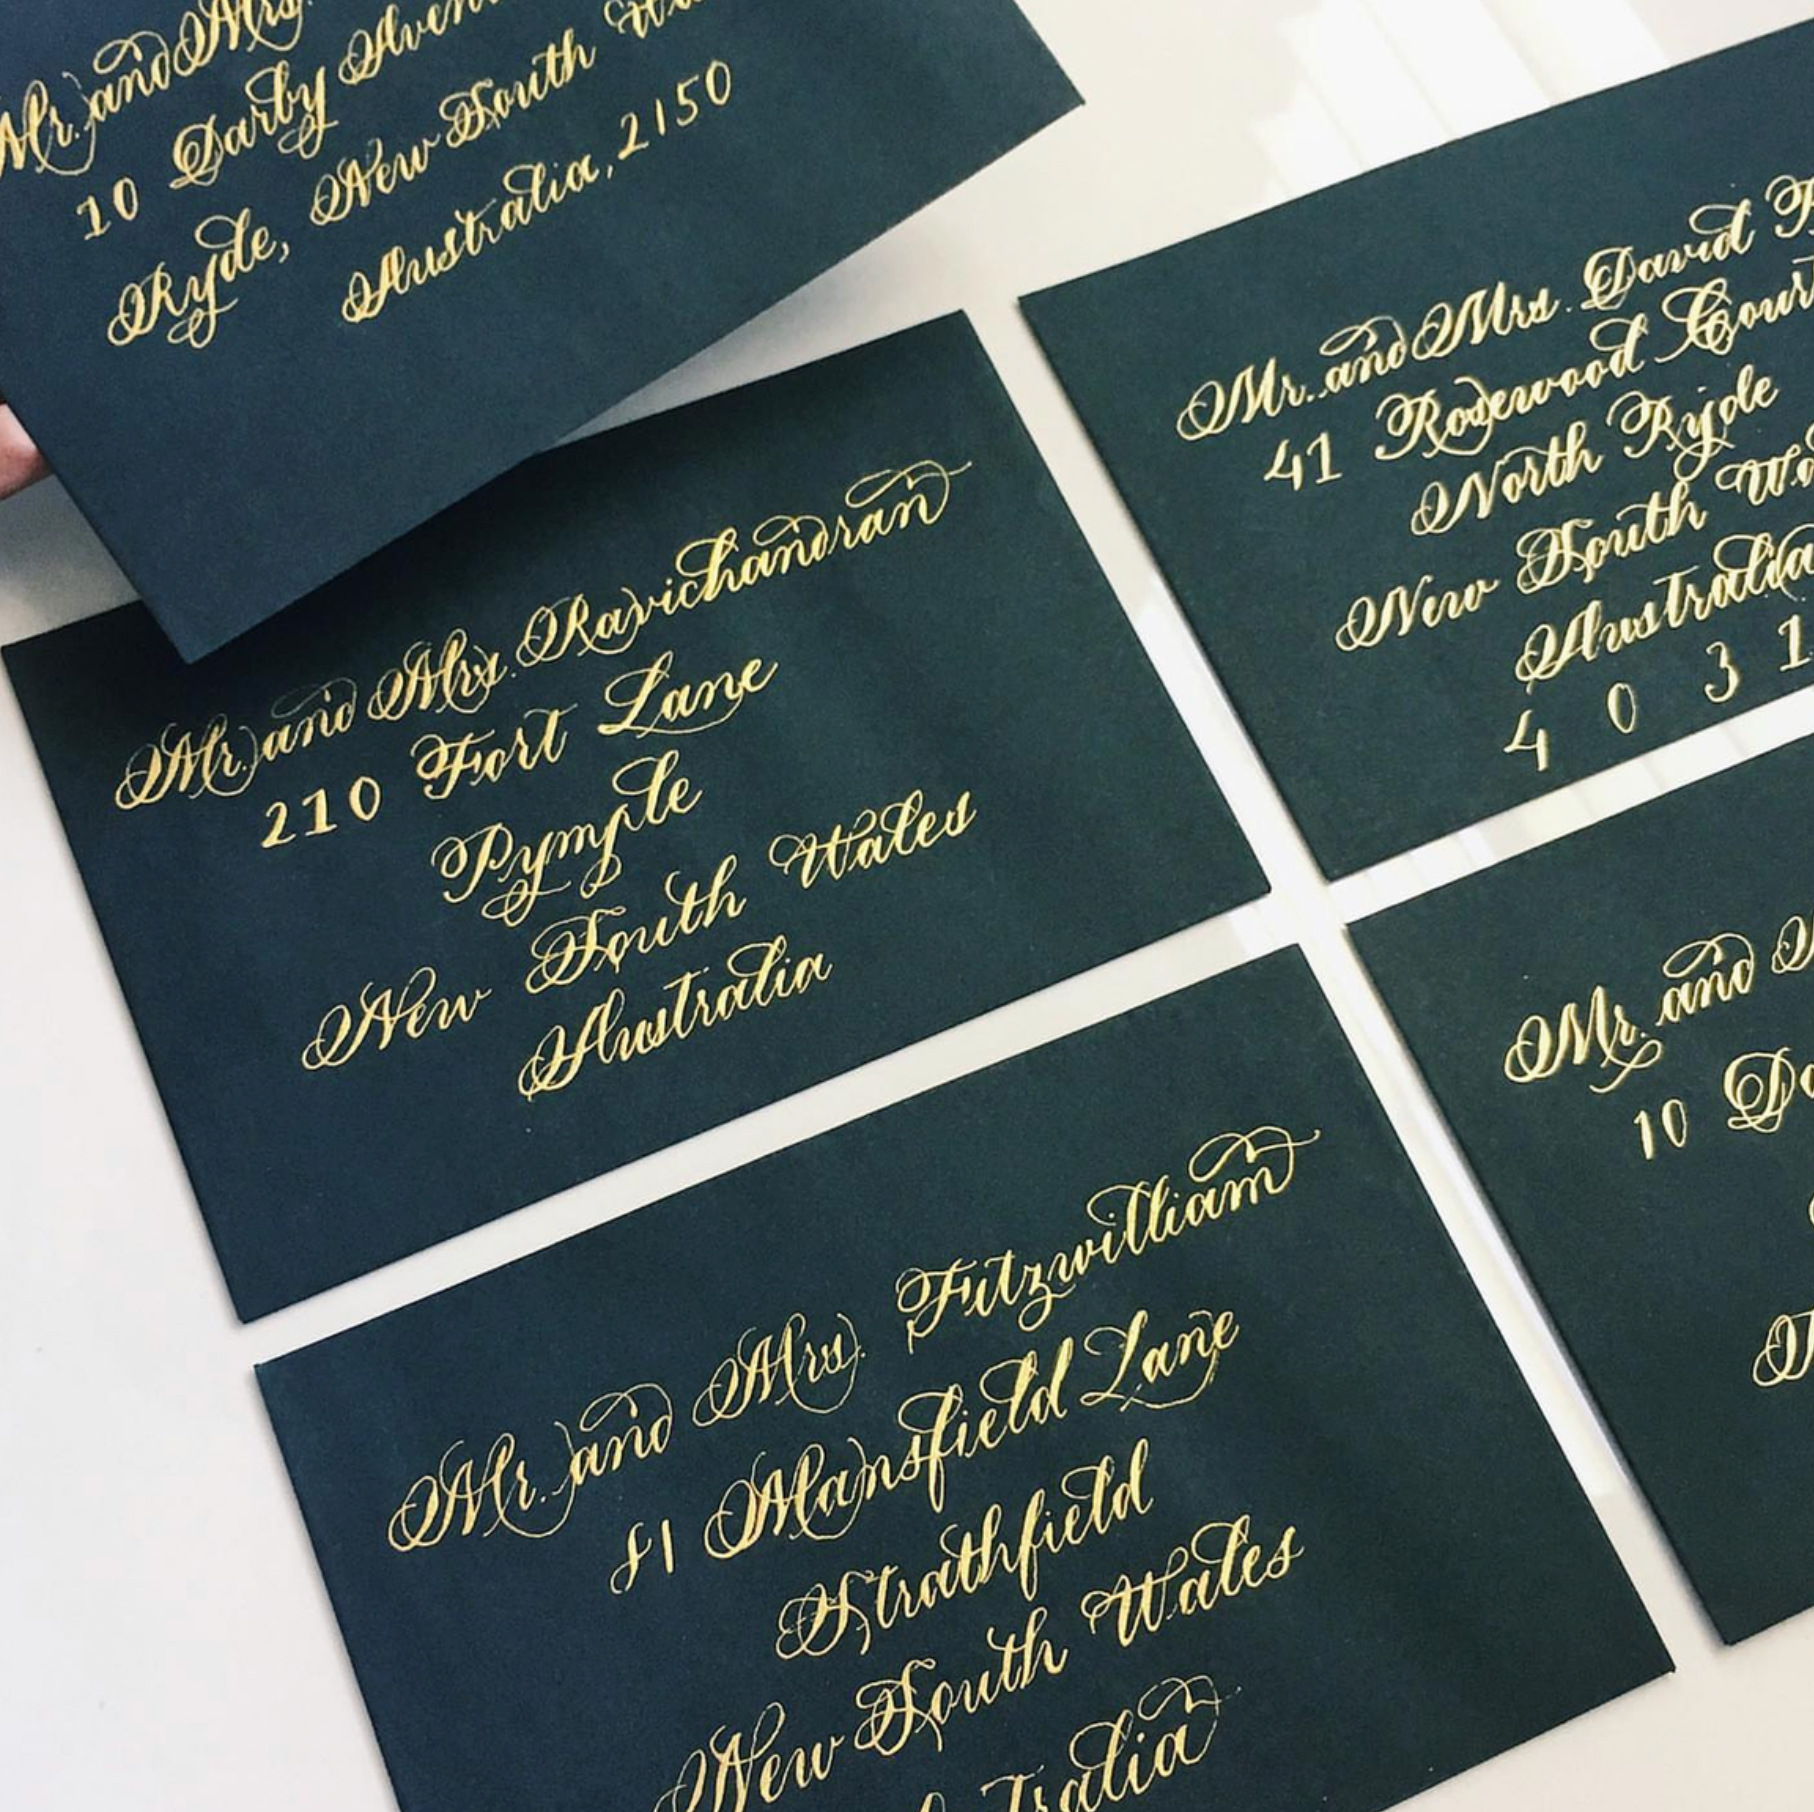 Mr. and Mrs.
10 Darby
Ryde, New South
Australia, 2150
Mr. and Mrs. David
41 Rosewood Court
North Ryde
New South
Australia
4 0 3 1
Mr. and Mrs. Ravichandran
210 Fort Lane
Pymple
New South Wales
Australia
Mr. and
10
Mr. and Mrs. Fitzwilliam
Mansfield Lane
Strathfield
New South Wales